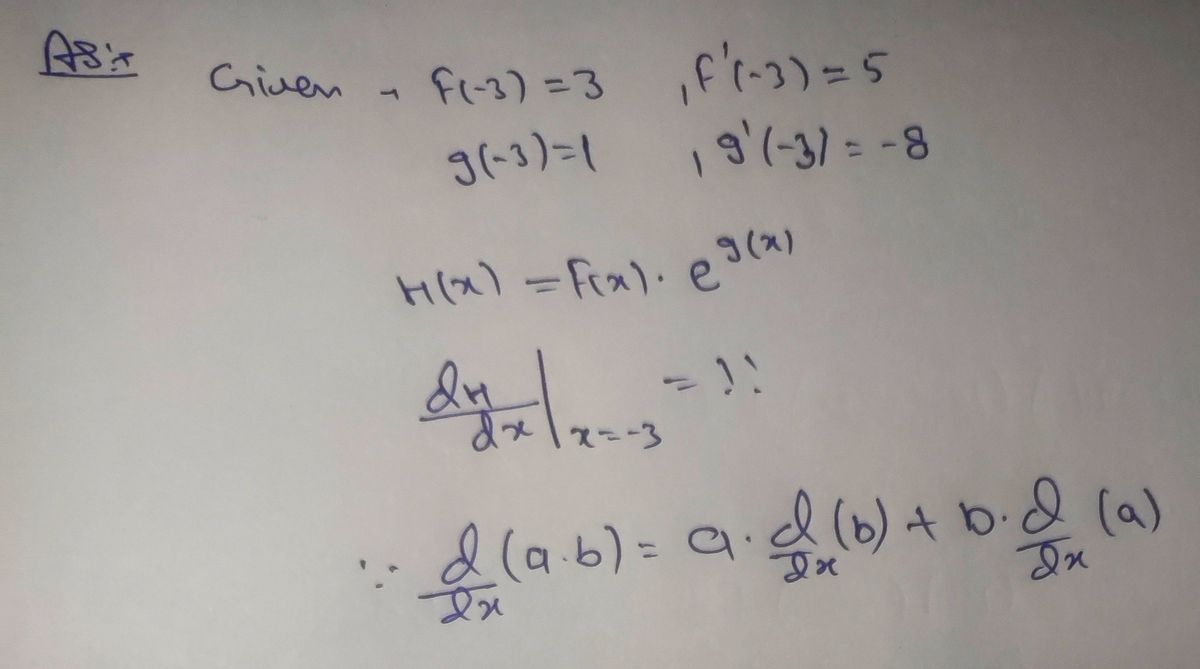 AS:→ Given → F(-3) = 3 , F'(-3) = 5
g(-3) = 1 , g'(-3) = -8
H(x) = F(x) · e^{g(x)}
dH/dx |_{x=-3} = !!
∵ d/dx (a·b) = a · d/dx (b) + b · d/dx (a)